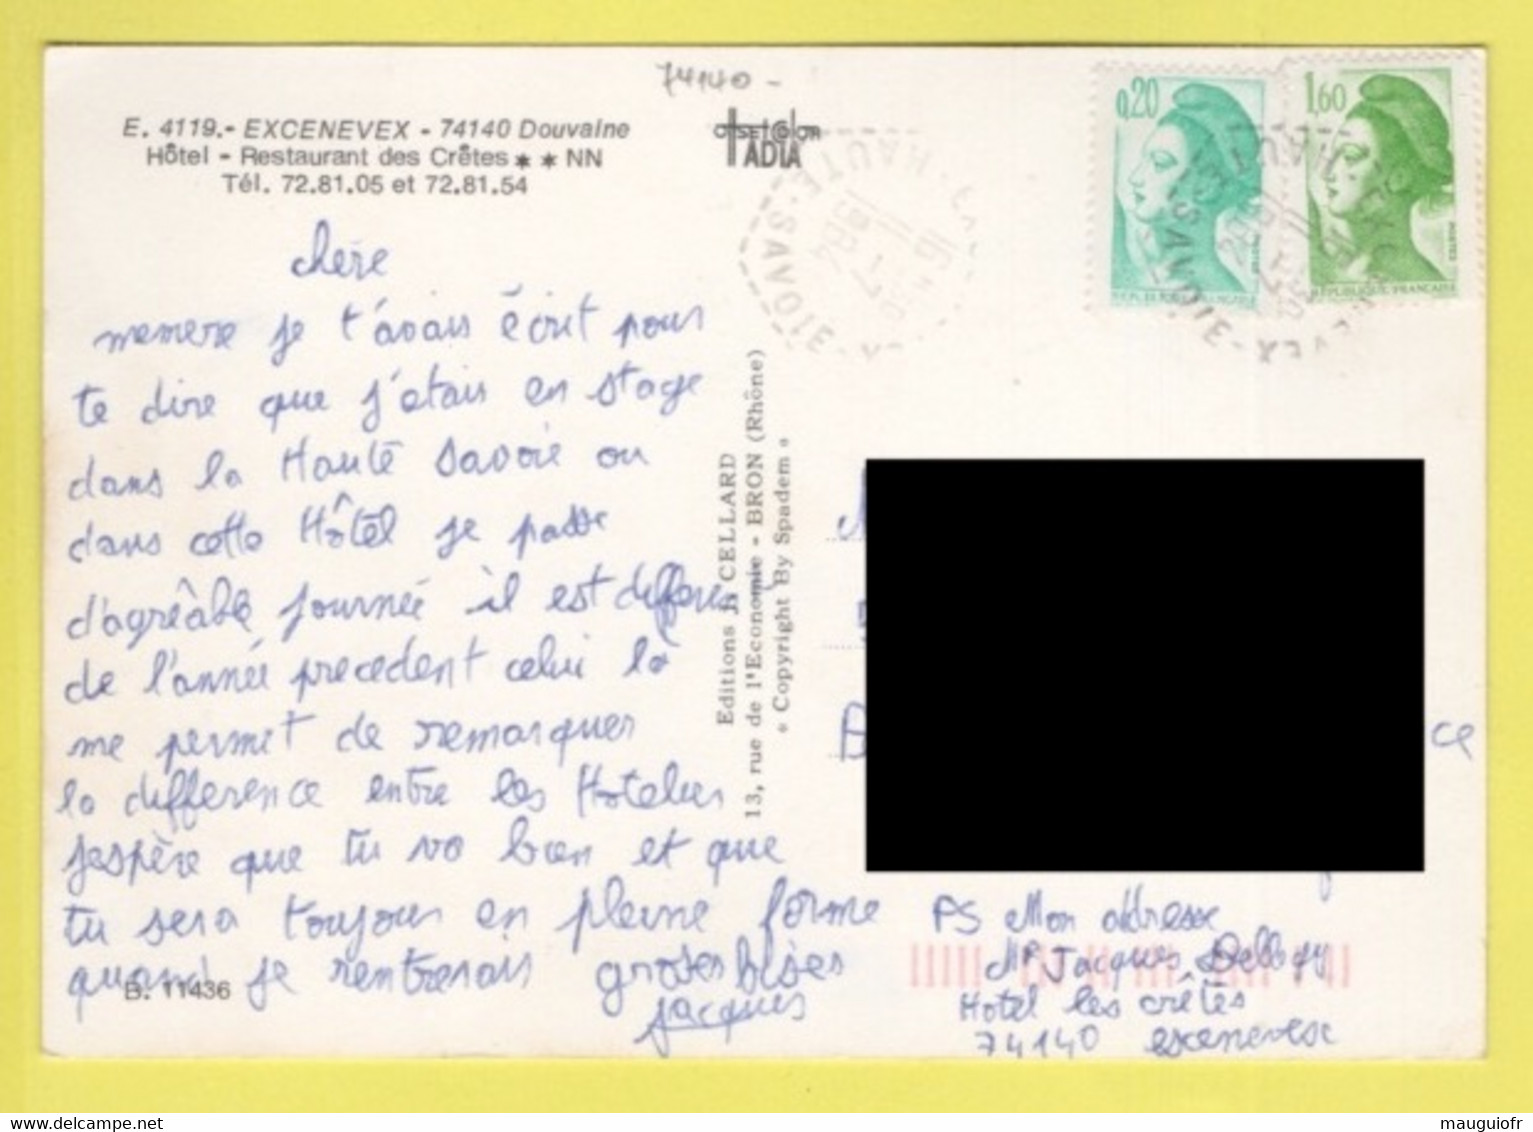 74140 -
E. 4119.- EXCENEVEX - 74140 Douvaine
Hôtel - Restaurant des Crêtes ★ ★ NN
Tél. 72.81.05 et 72.81.54
offset color
TADIA
0,20
1,60
REPUBLIQUE FRANÇAISE
HAUTE-SAVOIE
chere
memere je t'avais écrit pour
te dire que j'etais en stage
dans la Haute Savoie ou
dans cette Hôtel je passe
d'agréable journée il est differen
de l'année precedent celui là
me permet de remarquer
la difference entre les Hoteliers
j'espère que tu va bien et que
tu sera toujour en pleine forme
quand je rentrerais groses bises
Jacques
B. 11436
Editions J. CELLARD
13, rue de l'Economie - BRON (Rhône)
« Copyright By Spadem »
ce
PS Mon addresse
Mr Jacques
Hotel les crêtes
74140 excenevex
mauguiofr
delcampe.net